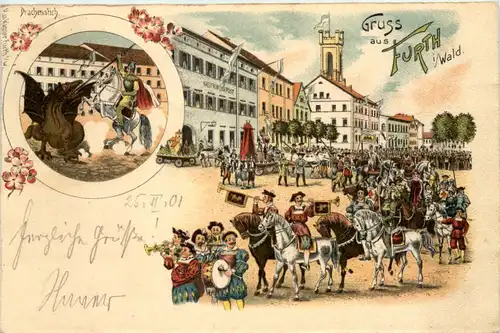 Drachenstich.
Gruss
aus
FURTH
i/Wald.
25.II.01
Herzliche Grüße!